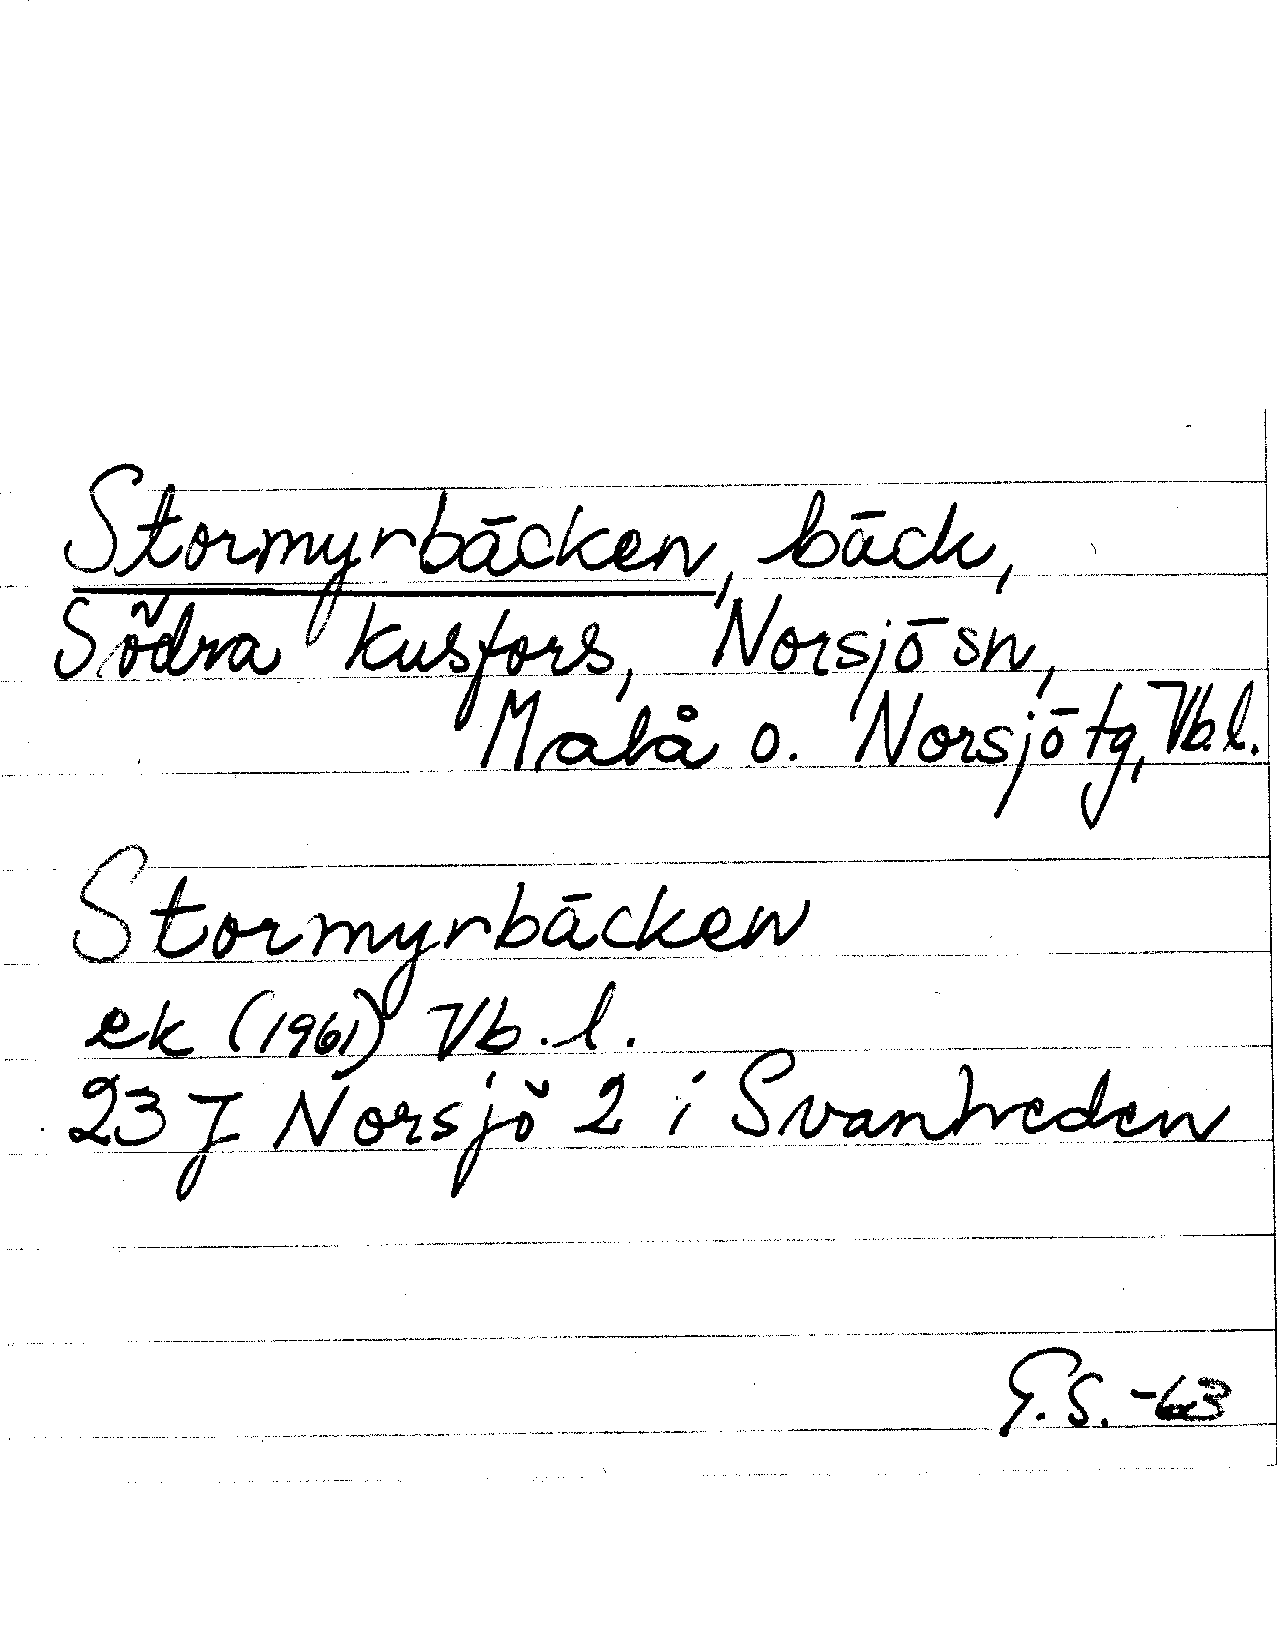 Stormyrbäcken, bäck,
Södra Kusfors, Norsjö sn,
Malå o. Norsjö tg, Vb.l.
Stormyrbäcken
ek (1961) Vb.l.
23 J Norsjö 2 i Svanheden
G.S. -63